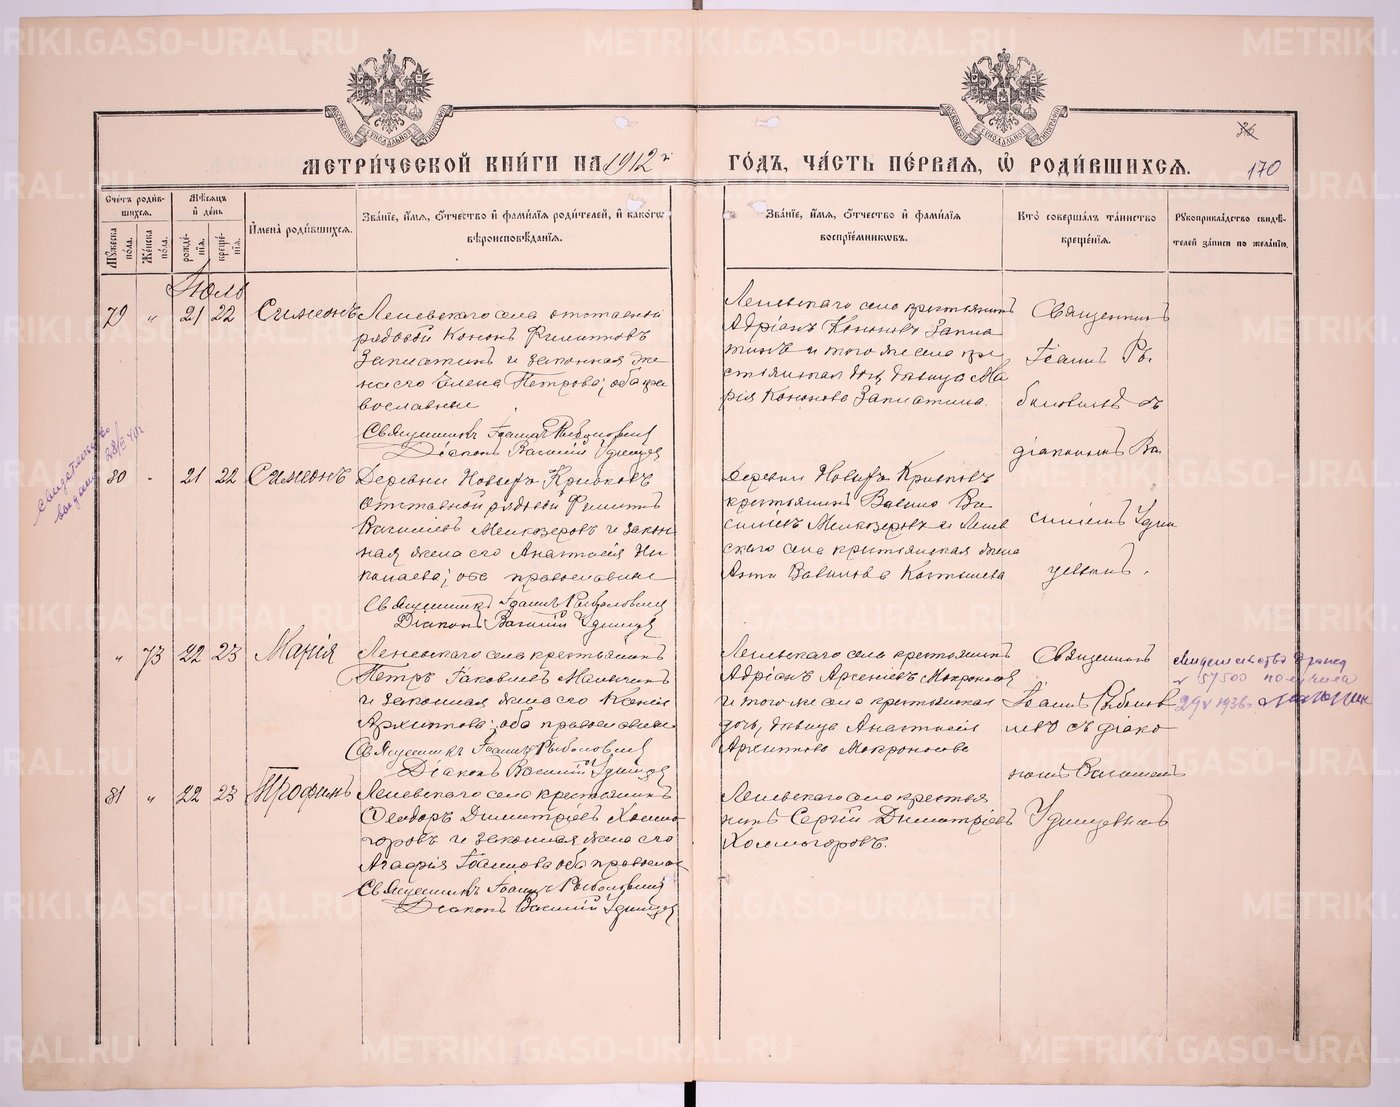 МЕТРИ́ЧЕСКОЙ КНИ́ГИ НА 1912й ГО́ДЪ, ЧА́СТЬ ПЕ́РВАЯ, Ѡ РОДИ́ВШИХСЯ.
36
170
Счетъ роди́вшихся.
Мѣсяцъ и день
Мужеска по́ла.
Же́нска по́ла.
рожде́нія.
креще́нія.
Имена̀ роди́вшихся.
Зва́ніе, имя, отчество и фами́лія роди́телей, и како́гѡ вѣроисповѣ́данія.
Зва́ніе, имя, отчество и фами́лія воспріе́мниковъ.
Кто̀ соверша́лъ та́инство креще́нія.
Рукоприкла́дство свидѣ́телей за́писи по жела́нію.
Іюль
79 " 21 22 Симеонъ
Леневскаго села отставной
рядовой Кононъ Филиповъ
Запиаткинъ и законная же
на его Елена Петрова; оба пра
вославные
Священникъ Іоаннъ Рыболовлевъ
Діаконъ Василій Удинцев
Леневскаго села крестьянинъ
Адріанъ Кононовъ
и того же села кре
стьянская дочь, дѣвица Ма
рія Кононова
Священникъ
Іоаннъ Ры
боловлевъ съ
діакономъ Ва
силіемъ Удин
цевымъ.
80 " 21 22 Симеонъ
Деревни Новыхъ Кривковъ
отставной рядовой Филиппъ
Василіевъ Мелкозеровъ и закон
ная жена его Анастасія Ни
колаева; оба православные
Священникъ Іоаннъ Рыболовлевъ
Діаконъ Василій Удинцев
Деревни Новыхъ Кривковъ
крестьянинъ Вавило Ва
силіевъ Мелкозеровъ и Ленев
скаго села крестьянская жена
Анна Вавилова
" 73 22 23 Марія
Леневскаго села крестьянинъ
Петръ Іаковлевъ
и законная жена его Ксенія
Архипова; оба православные
Священникъ Іоаннъ Рыболовлевъ
Діаконъ Василій Удинцев
Леневскаго села крестьянинъ
Адріанъ Арсеніевъ Мокроносовъ
и того же села крестьянская
дочь, дѣвица Анастасія
Архипова Мокроносова
Священникъ
Іоаннъ Рыболов
левъ съ діако
номъ Василіемъ
Удинцевымъ
57500 получила
29 V 1936
81 " 22 23 Трофимъ
Леневскаго села крестьянинъ
Ѳеодоръ Димитріевъ Холмо
горовъ и законная жена его
Агафія Іоаннова оба православ
Священникъ Іоаннъ Рыболовлевъ
Діаконъ Василій Удинцев
Леневскаго села крестья
нинъ Сергій Димитріевъ
Холмогоровъ.
METRIKI.GASO-URAL.RU